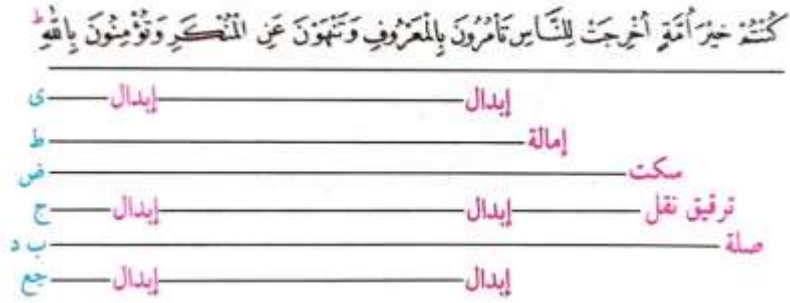 كُنْتُمْ خَيْرَ أُمَّةٍ أُخْرِجَتْ لِلنَّاسِ تَأْمُرُونَ بِالْمَعْرُوفِ وَتَنْهَوْنَ عَنِ الْمُنْكَرِ وَتُؤْمِنُونَ بِاللَّهِ ط
إبدال إبدال ى
إمالة ط
سكت ض
ترقيق نقل إبدال إبدال ج
صلة ب د
إبدال إبدال جع